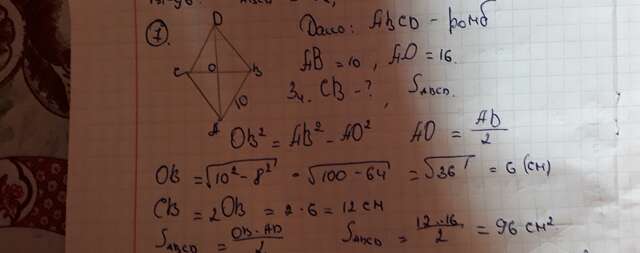 7.
Дано: ABCD - ромб
AB = 10, AD = 16.
Зн. CB - ?, S ABCD.
D
C
O
B
10
A
OB² = AB² - AO²
AO = AD/2
OB = √10² - 8² = √100 - 64 = √36 = 6 (см)
CB = 2OB = 2 · 6 = 12 см
S ABCD = CB · AD/2
S ABCD = 12 · 16/2 = 96 см²